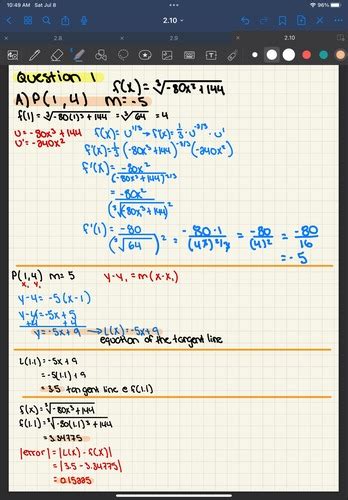 10:49 AM Sat Jul 6
96%
2.10
2.8
2.9
2.10
Question 1
f(x) = ∛-80x³+144
A) P(1,4) m = -5
f(1) = ∛-80(1)³+144 = ∛64 = 4
u = -80x³+144
u' = -240x²
f(x) = u^1/3 → f'(x) = 1/3 · u^-2/3 · u'
f'(x) = 1/3 (-80x³+144)^-2/3 (-240x²)
f'(x) = -80x² / (-80x³+144)^2/3
= -80x² / (∛-80x³+144)²
f'(1) = -80 / (∛64)² = -80·1 / (4³)^2/3 = -80 / (4)² = -80 / 16
= -5
P(1,4) m = 5
x₁ y₁
y-y₁ = m(x-x₁)
y-4 = -5(x-1)
y-4 = -5x+5
+4 +4
y = -5x+9 → L(x) = -5x+9
equation of the tangent line
L(1.1) = -5x+9
= -5(1.1)+9
= 3.5 tangent line @ f(1.1)
f(x) = ∛-80x³+144
f(1.1) = ∛-80(1.1)³+144
= 3.34775
|error| = |L(x) - f(x)|
= |3.5 - 3.34775|
= 0.15225